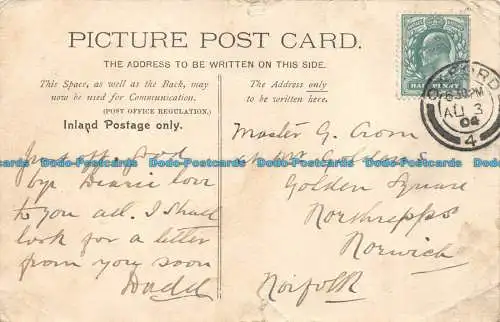 PICTURE POST CARD.
THE ADDRESS TO BE WRITTEN ON THIS SIDE.
This Space, as well as the Back, may
now be used for Communication.
(POST OFFICE REGULATION.)
Inland Postage only.
The Address only
to be written here.
HALFPENNY
OXFORD
6.30PM
AU 3
04
4
Just off. God
bye Dearie love
to you all. I shall
look for a letter
from you soon
Dadd
Master G. Crom
Golden Square
Northrepps
Norwich
Norfolk
Bdo-Postcards Bdo-Postcards Bdo-Postcards Bdo-Postcards Bdo-Postcards